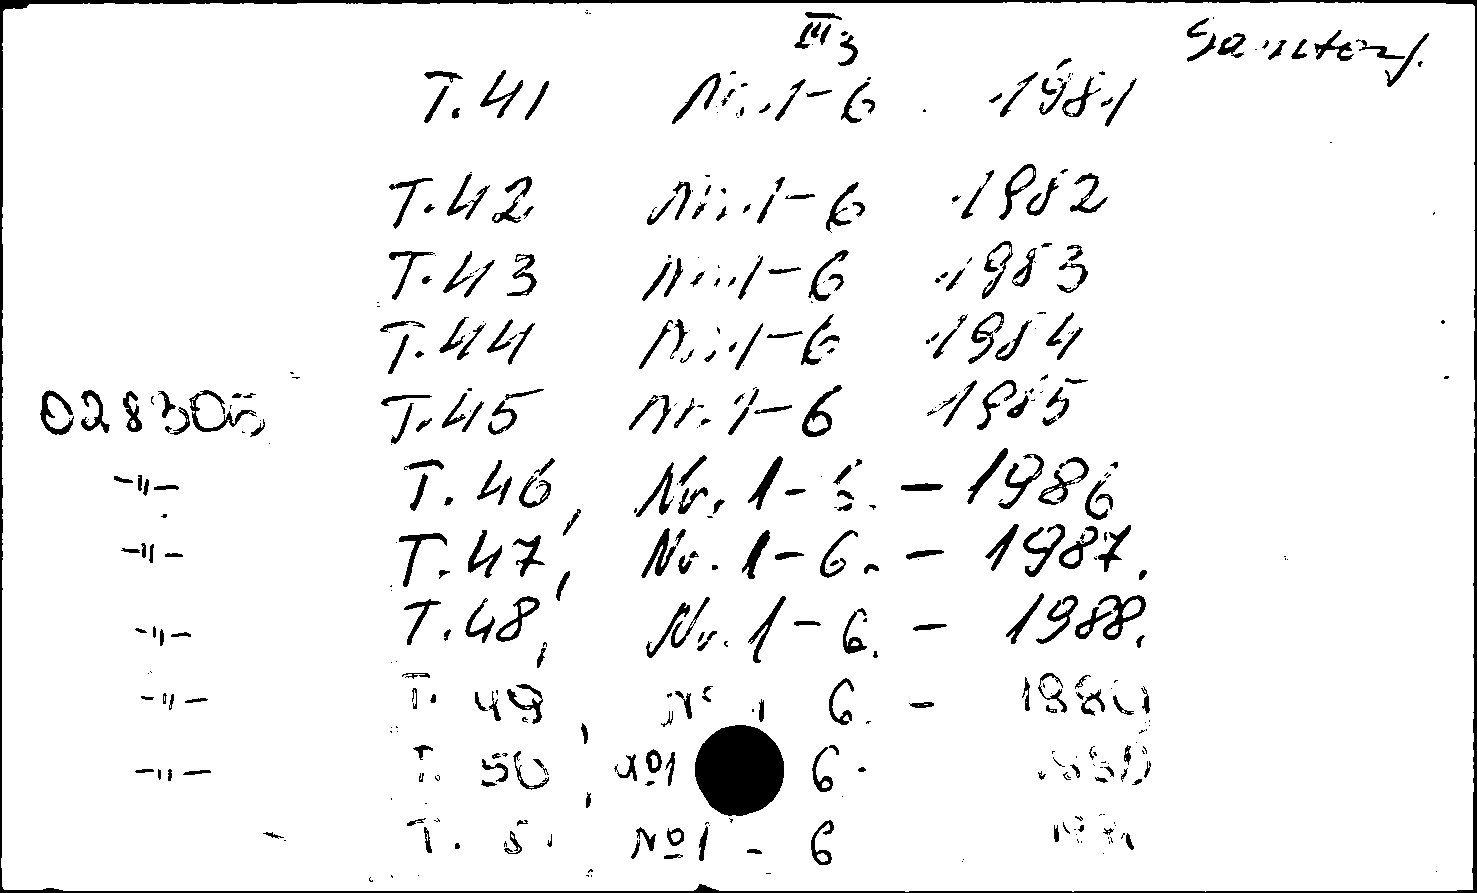 III3
T.41 Nr.1-6 1981
T.42 Nr.1-6 1982
T.43 Nr.1-6 1983
T.44 Nr.1-6 1984
028305 T.45 Nr.1-6 1985
-"- T.46, Nr.1-6. - 1986
-"- T.47, Nr.1-6. - 1987.
-"- T.48, Nr.1-6. - 1988.
-"- T. 49, 6. - 1989
-"- T. 50, №1 6.
T. №1 - 6